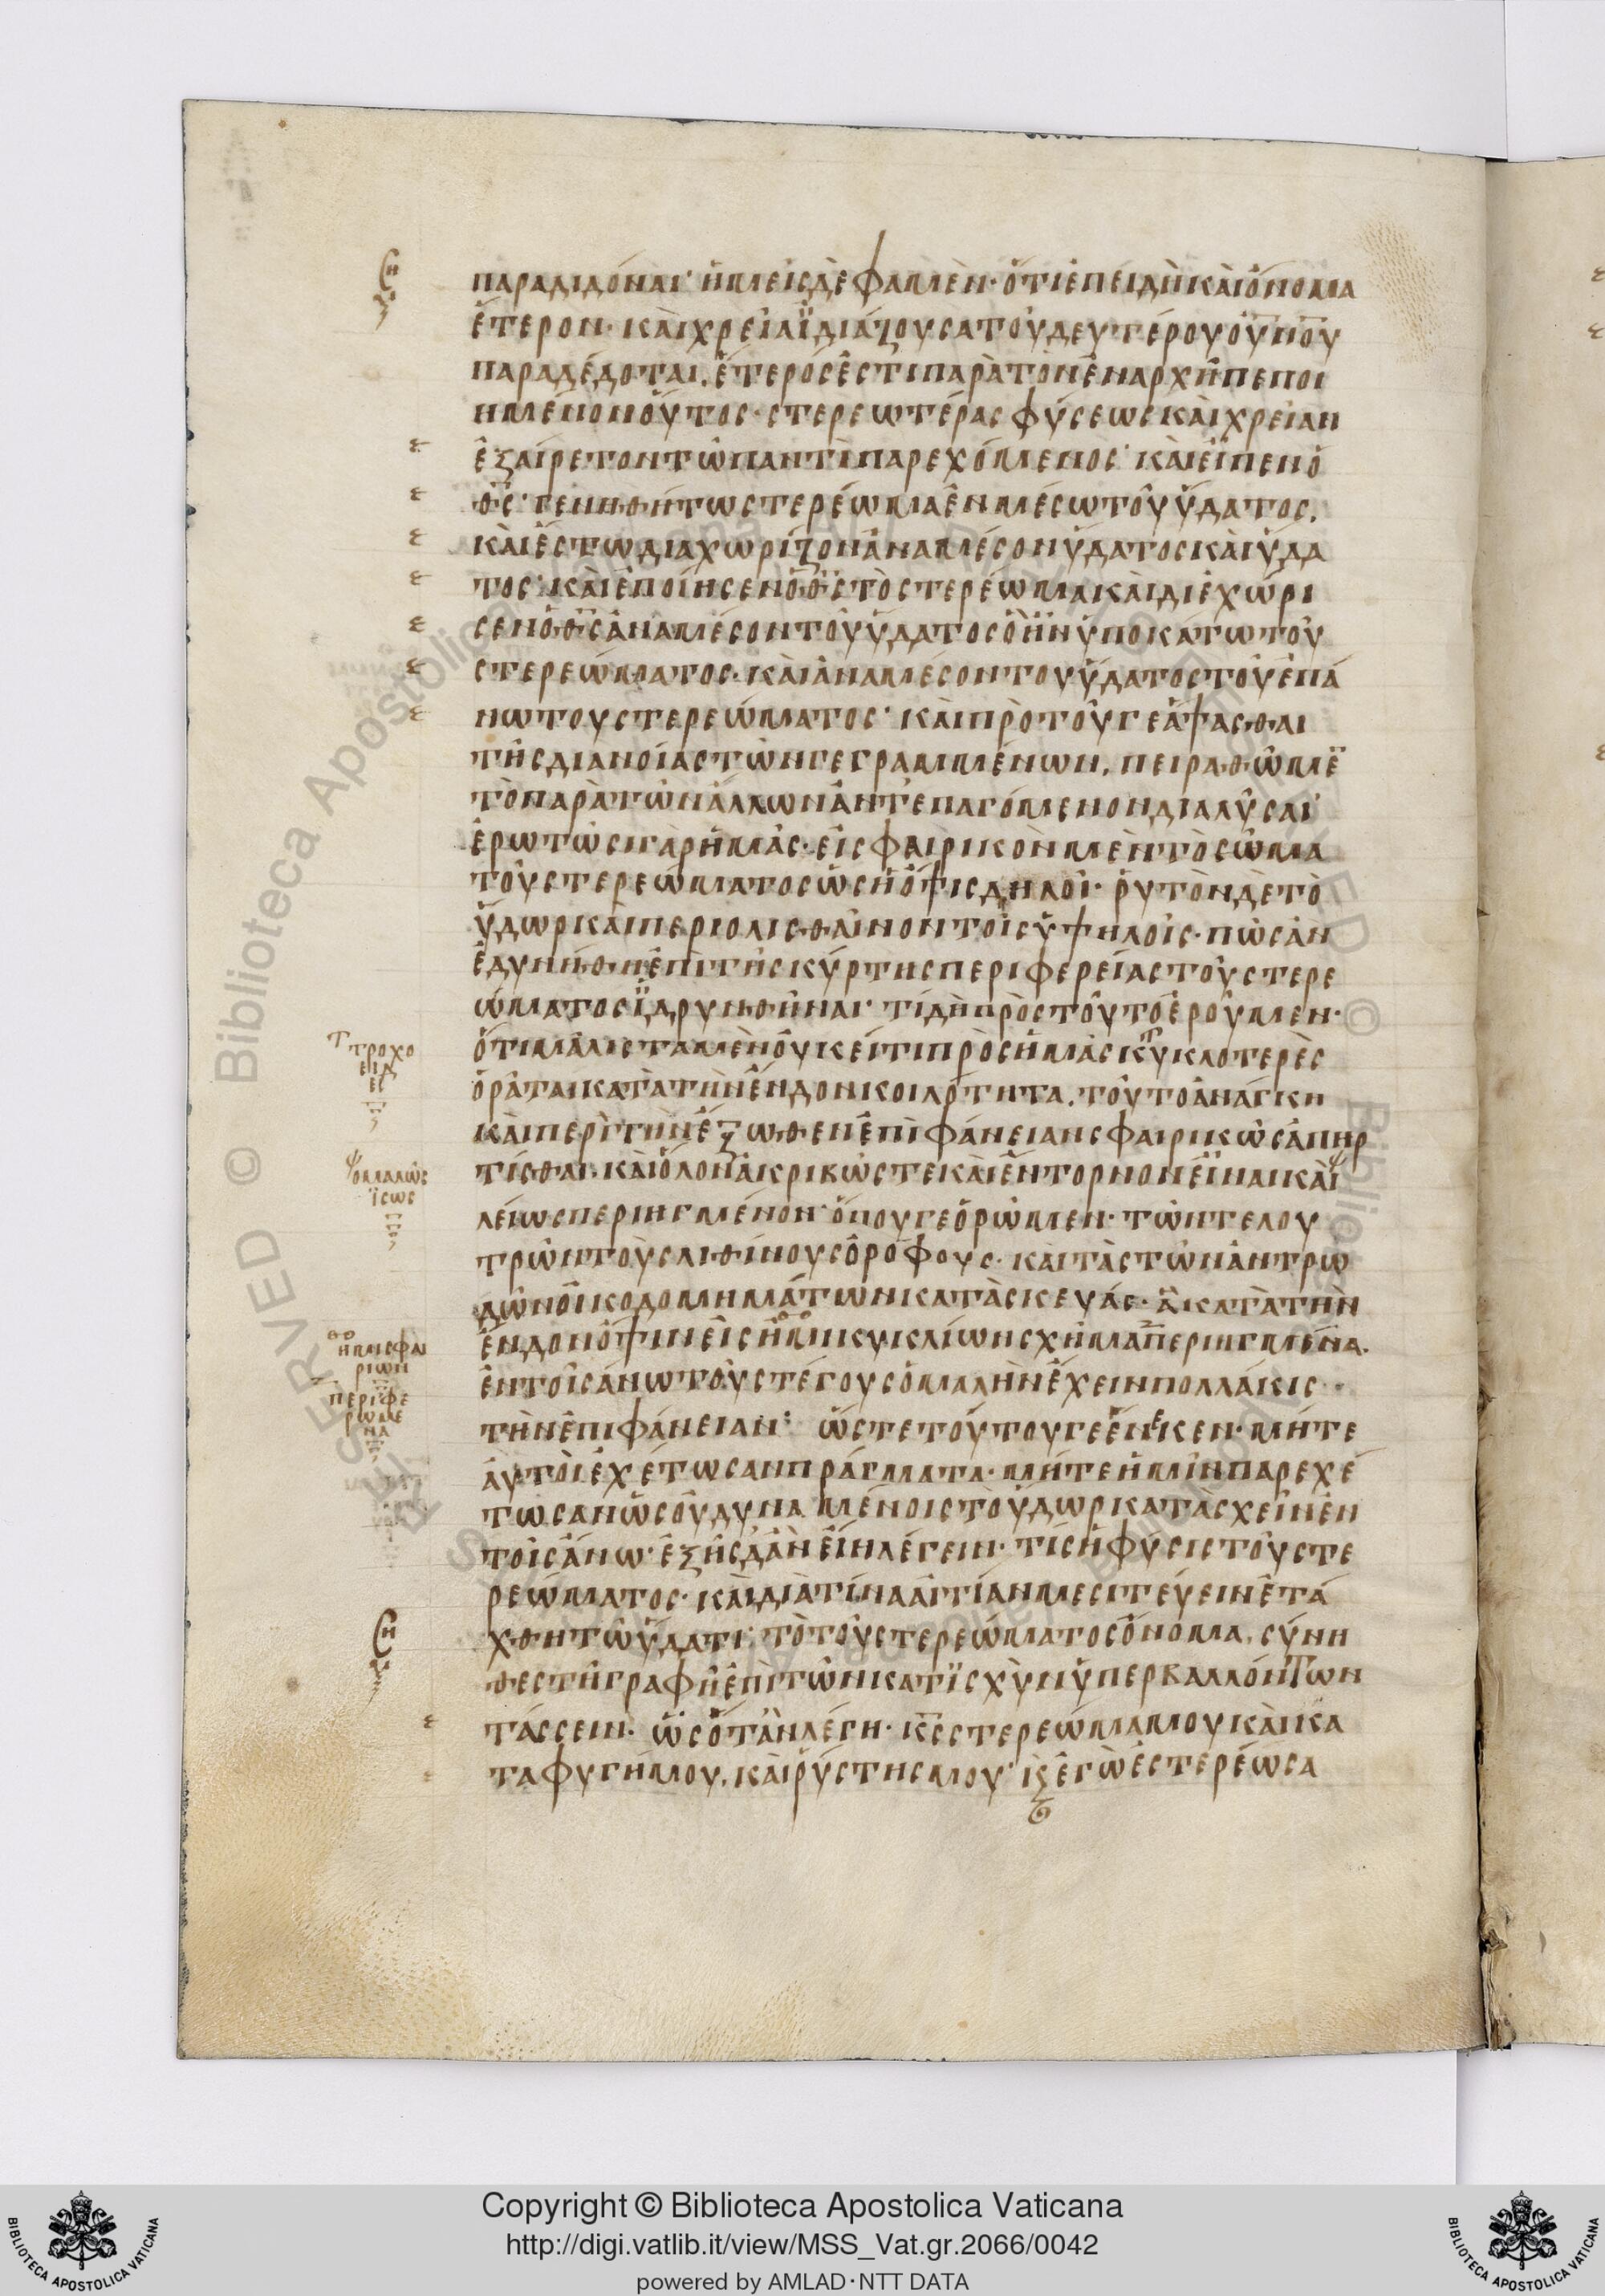 παραδιδόναι· ἡμεῖς δὲ φαμὲν· ὅτι ἐπειδὴ καὶ ὄνομα
ἕτερον· καὶ χρεία ϊδιάζουσα τοῦ δευτέρου οῦνου
παραδέδοται, ἕτερός ἐστι παρὰ τὸν ἐν ἀρχῆ πεποι
ημένον οὗτος· στερεωτέρας φύσεως καὶ χρείαν
ἐξαίρετον τῶ παντὶ παρεχόμενος· καὶ εἶπεν ὁ
θς· γεννηθήτω στερέωμα ἐν μέσω τοῦ ὕδατος,
καὶ ἔστω διαχωρίζον ἀναμέσον ὕδατος καὶ ὕδα
τος· καὶ ἐποίησεν ὁ θς τὸ στερέωμα καὶ διεχώρι
σεν ὁ θς ἀναμέσον τοῦ ὕδατος ὃ ἦν ὑποκάτω τοῦ
στερεώματος· καὶ ἀναμέσον τοῦ ὕδατος τοῦ ἐπά
νω τοῦ στερεώματος· καὶ πρὸ τοῦ γε ἅψασθαι
τῆς διανοίας τῶν γεγραμμένων, πειραθῶμε
τὸ παρὰ τῶν ἄλλων ἀντεπαγόμενον διαλῦσαι·
ἐρωτῶσι γὰρ ἡμᾶς· εἰ σφαιρικὸν μὲν τὸ σῶμα
τοῦ στερεώματος ὡς ἡ ὄψις δηλοῖ· ῥυτὸν δὲ τὸ
ὕδωρ καὶ περιολισθαῖνον τοῖς ὑψηλοῖς· πῶς ἂν
ἐδυνήθη ἐπὶ τῆς κύρτης περιφερείας τοῦ στερε
ώματος ϊδρυνθῆναι· τί δὴ πρὸς τοῦτο ἐροῦμεν·
ὅτι μάλιστα μὲν οὐκ εἴ τι πρὸς ἡμᾶς κυκλοτερὲς
ὁρᾶται κατὰ τὴν ἔνδον κοιλότητα, τοῦτο ἀνάγκη
καὶ περὶ τὴν ἔξωθεν ἐπιφάνειαν σφαιρικῶς ἀπηρ
τίσθαι· καὶ ὅλον ἀκριβῶς τε καὶ ἔντορνον εἶναι καὶ
λείως περιηγμένον· ὅπου γε ὁρῶμεν· τῶν τε λου
τρῶν τοὺς λιθίνους ὀρόφους· καὶ τὰς τῶν ἀντρω
δῶν οἰκοδομημάτων κατασκευάς· ἃ κατὰ τὴν
ἔνδον ὄψιν εἰς ἡμικυκλίων σχῆμα περιηγμένα.
ἐν τοῖς ἄνω τοῦ στέγους ὁμαλὴν ἔχειν πολλάκις
τὴν ἐπιφάνειαν: ὥστε τούτου γε ἕνεκεν· μήτε
αὐτοὶ ἐχέτωσαν πράγματα· μήτε ἡμῖν παρεχέ
τωσαν ὡς οὐ δυναμένοις τὸ ὕδωρ κατασχεῖν ἐν
τοῖς ἄνω· ἑξῆς δ' ἂν εἴη λέγειν· τίς ἡ φύσις τοῦ στε
ρεώματος· καὶ διὰ τίνα αἰτίαν μεσιτεύειν ἐτά
χθη τῶ ὕδατι· τὸ τοῦ στερεώματος ὄνομα, σύνη
θες τῆ γραφῆ ἐπὶ τῶν κατ' ϊσχὺν ὑπερβαλλόντων
τάσσειν· ὡς ὅταν λέγη· κς στερέωμα μου καὶ κα
ταφυγή μου, καὶ ῥύστης μου· κ ἐγὼ ἐστερέωσα
τροχο
ειδ
ες
ὁμαλῶς
ϊσως
ἡμισφαι
ριων
περιφε
ρωμε
να
Copyright © Biblioteca Apostolica Vaticana
http://digi.vatlib.it/view/MSS_Vat.gr.2066/0042
powered by AMLAD·NTT DATA
BIBLIOTECA APOSTOLICA VATICANA
BIBLIOTECA APOSTOLICA VATICANA